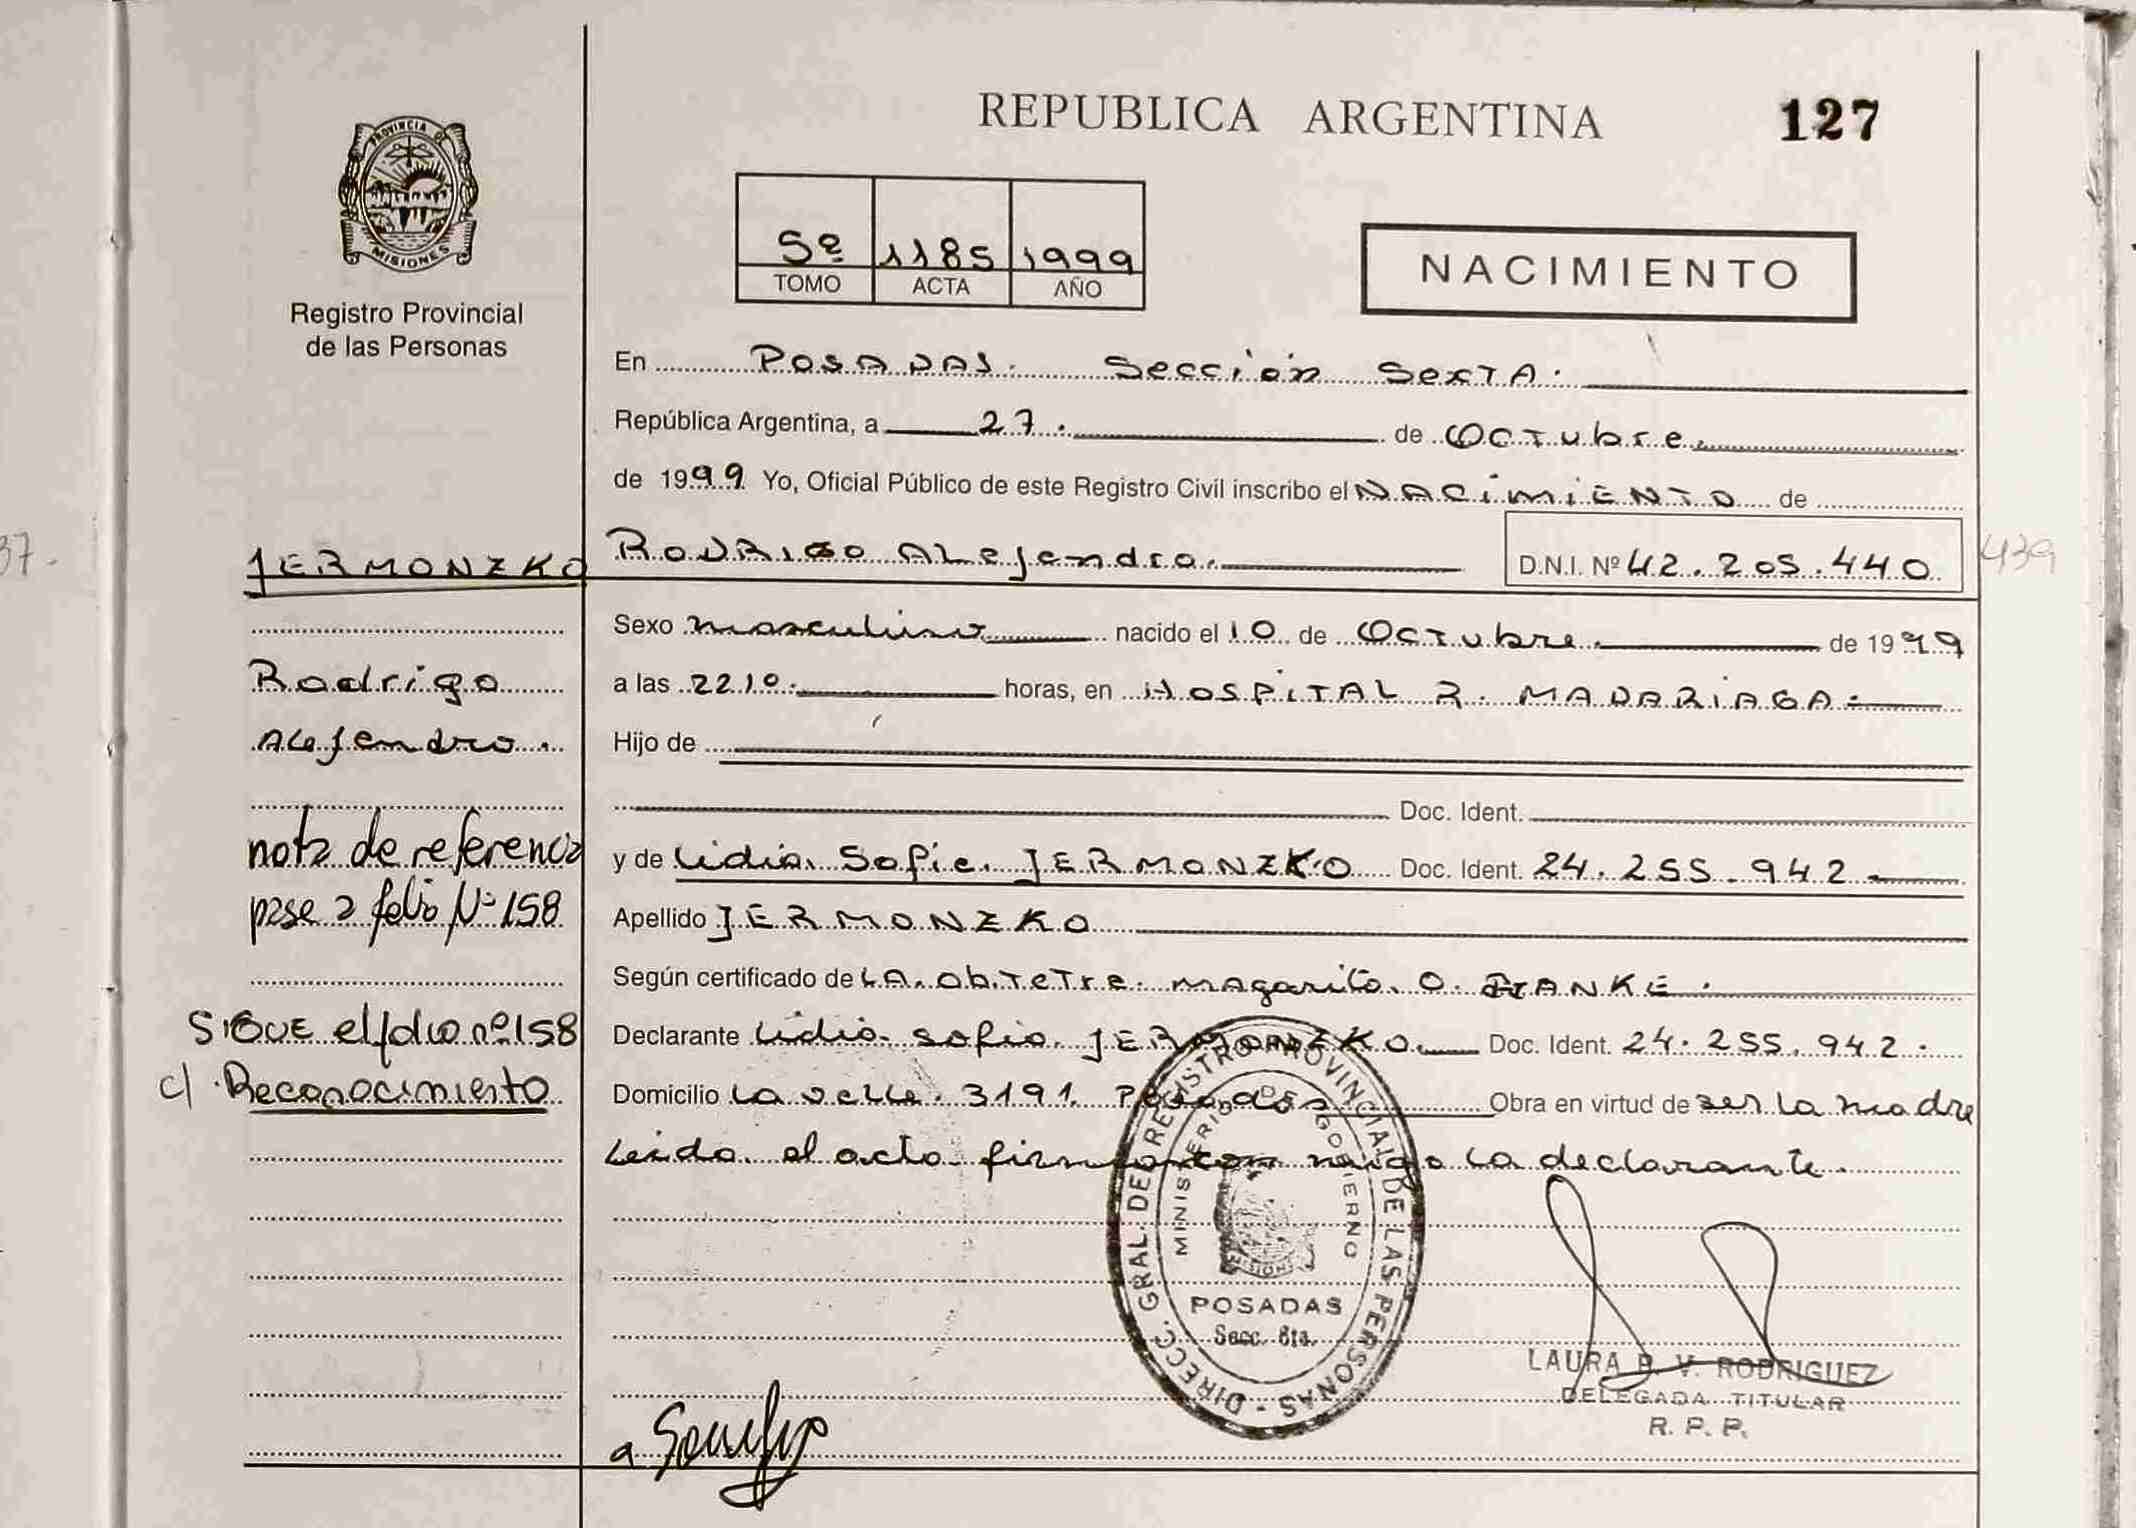 REPUBLICA ARGENTINA
127
PROVINCIA DE
MISIONES
Registro Provincial
de las Personas
5º 1185 1999
TOMO ACTA AÑO
NACIMIENTO
En POSADAS. Sección SexTA.
República Argentina, a 27. de Octubre
de 1999 Yo, Oficial Público de este Registro Civil inscribo el NACIMIENTO de
37.
JERMONZKO
RODRIGO ALejandro.
D.N.I. Nº 42.205.440
439
Sexo masculino nacido el 10 de Octubre de 1999
Rodrigo
a las 2210. horas, en HOSPITAL R. MADARIAGA.
ALejandro.
Hijo de
Doc. Ident.
nota de referencia
y de Lidia Sofia JERMONZKO Doc. Ident. 24.255.942
pase a folio Nº 158
Apellido JERMONZKO
Según certificado de LA Obtetre. Magarita O.
SIGUE el folio nº 158
Declarante Lidia Sofia JERMONZKO Doc. Ident. 24.255.942.
c/ Reconocimiento
Domicilio La valle 3191 Posadas Obra en virtud de ser la madre
Leido el acto firma con migo la declarante.
DIRECC. GRAL. DE REGISTRO PROVINCIAL DE LAS PERSONAS
MINISTERIO DE GOBIERNO
MISIONES
POSADAS
Secc. 6ta.
LAURA V. RODRIGUEZ
DELEGADA TITULAR
R. P. P.